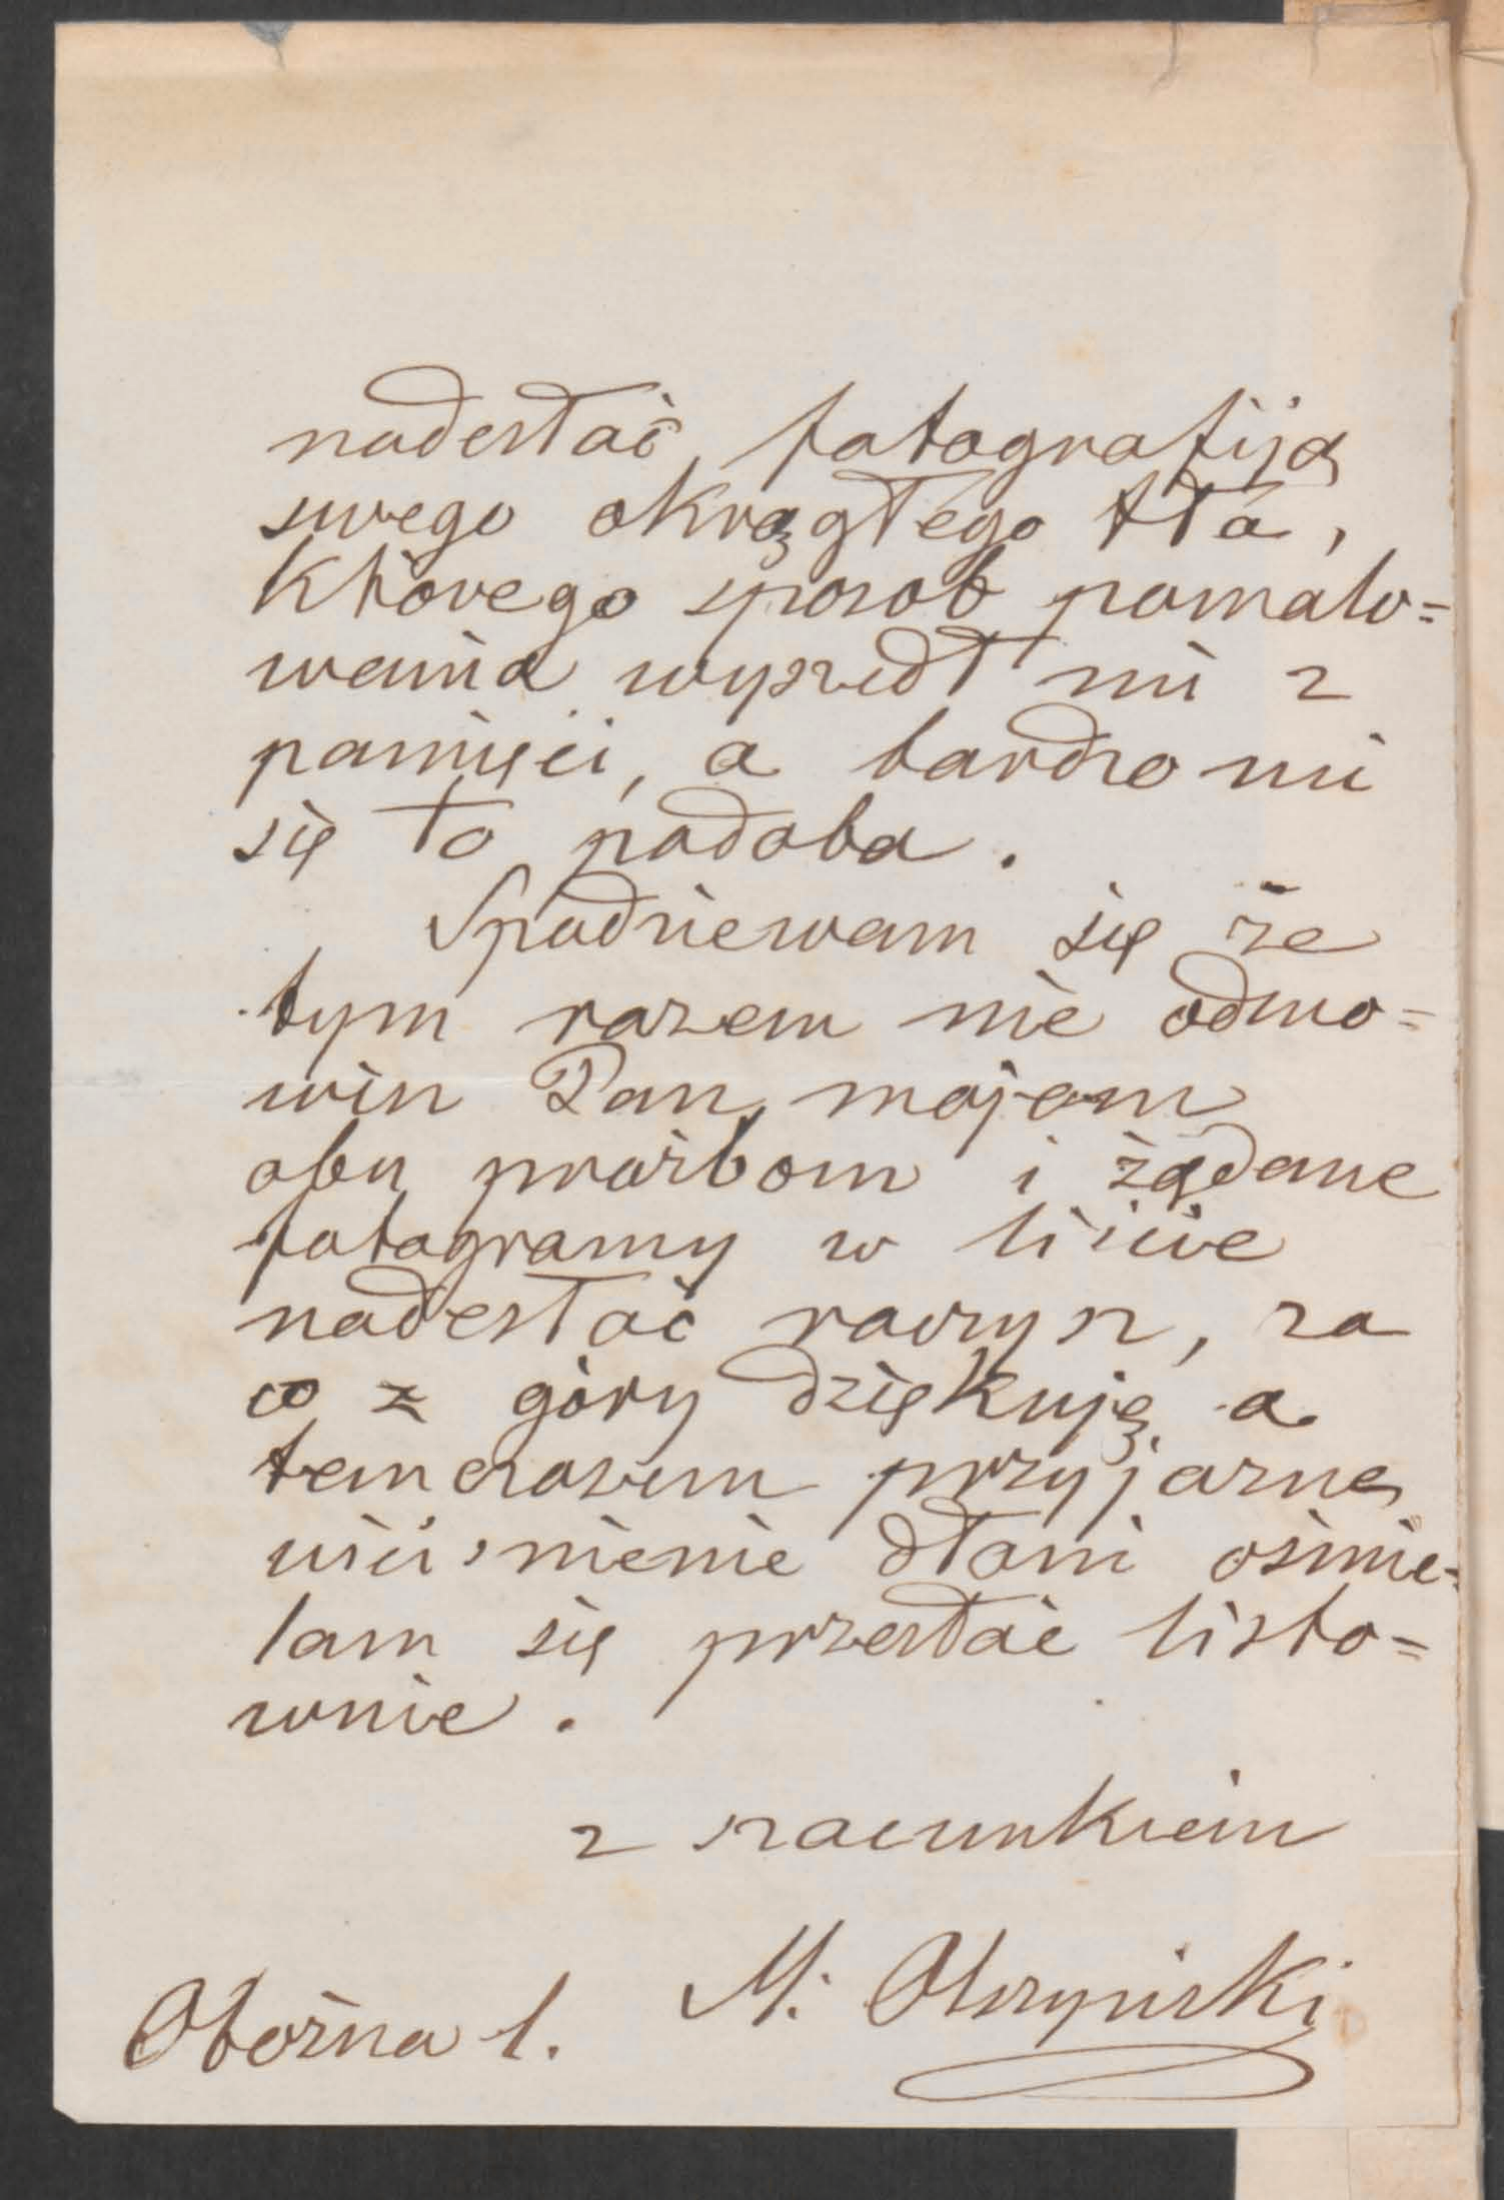 nadesłać fotografiją
swego okrągłego tła,
którego sposób pomalo=
wania wyszedł mi z
pamięci, a bardzo mi
się to podoba.
Spodziewam się że
tym razem nie odmó=
wisz Pan mojem
obu prośbom i żądane
fotogramy w liście
nadesłać raczysz, za
co z góry dziękuję a
temczasem przyjazne
uściśnienie dłoni ośmie=
lam się przesłać listo=
wnie.
z szacunkiem
M. Olszyński
Oboźna 1.